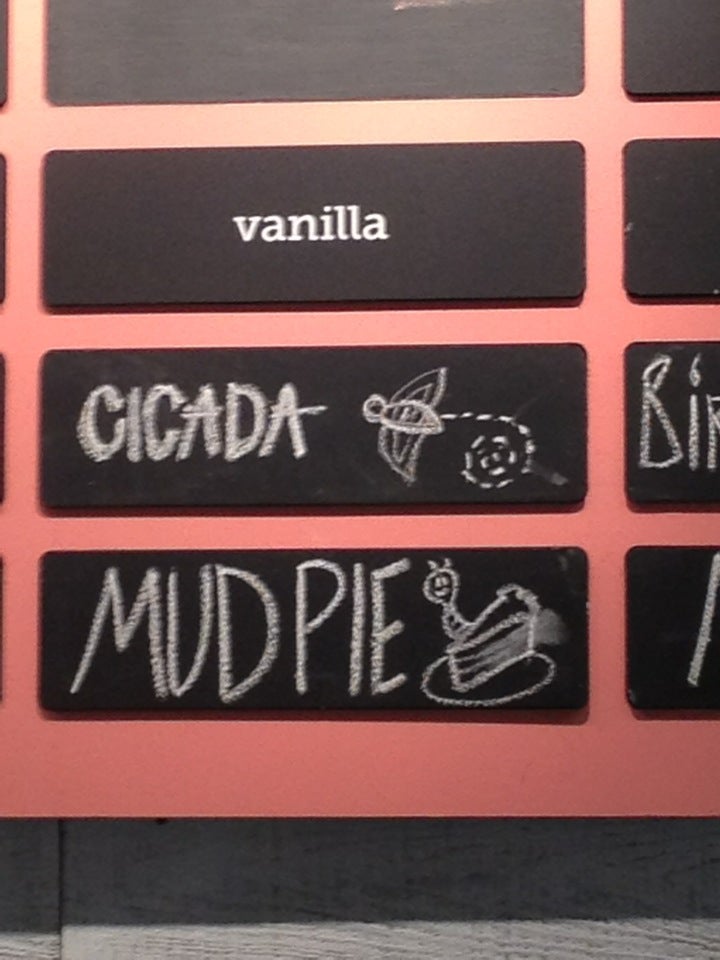 vanilla
CICADA
MUD PIE